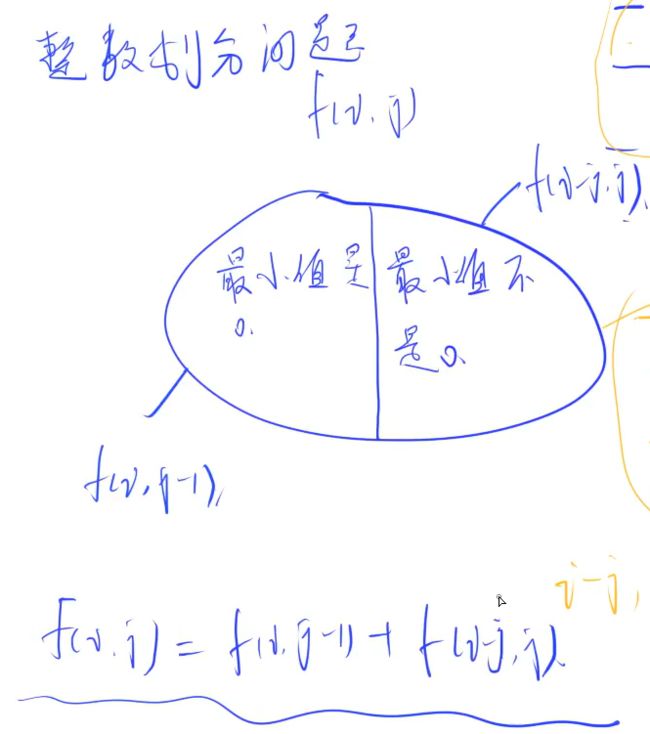 整数划分问题
f(i,j)
f(i-j,j)
最小值是
0.
最小值不
是0.
f(i,j-1)
i-j,
f(i,j) = f(i,j-1) + f(i-j,j).